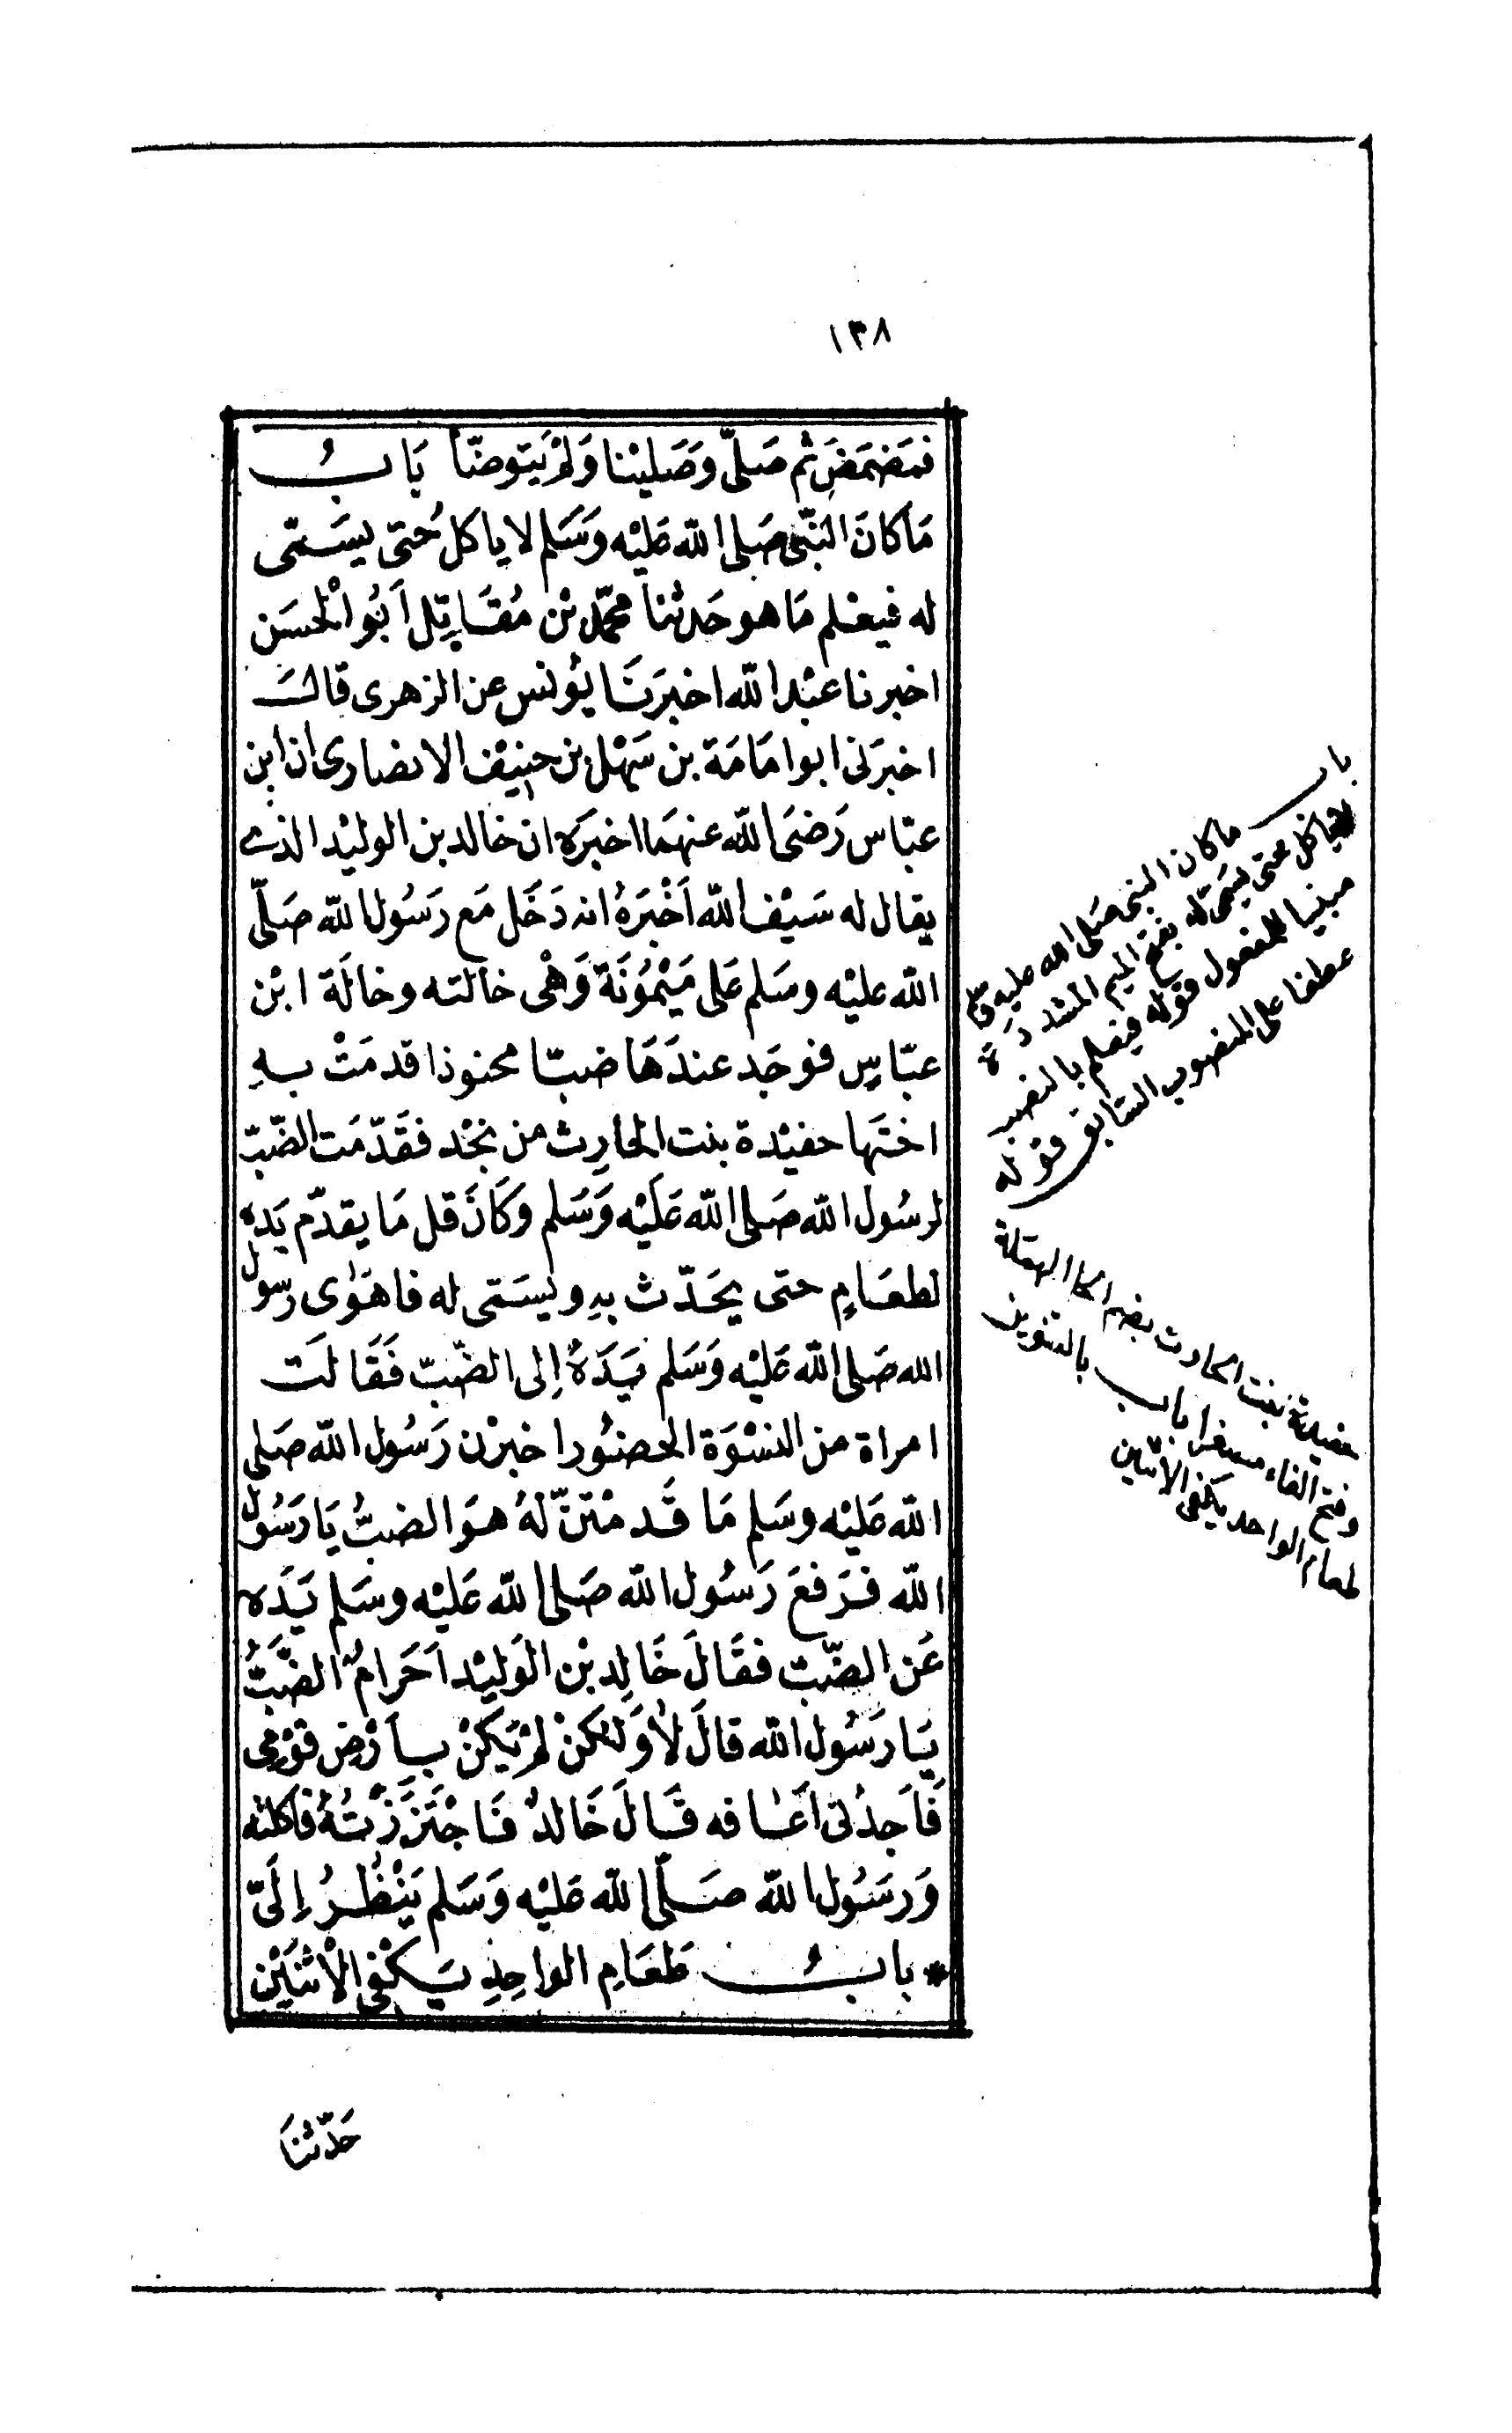 ١٣٨
فمَضمَضَ ثم صَلىّ وَصَلينا وَلمْ يَتوضّأ بَابُ
مَا كانَ النبّى صَلى الله عَليْه وَسَلم لا ياكل حُتى يسَمّى
له فيعْلم مَا هو حَدثنا محمّد بْن مُقَاتِل اَبُو الْحسَن
اخبرنا عبْد الله اخبرَنَا يُونس عن الزهرى قالَ
اخبرَنى ابو امَامَة بن سَهْل بن حنيْف الانصارى ان ابن
عبّاس رَضىَ الله عنهمَا اخبَرَه ان خالد بن الوليْد الذى
يقال له سَيْف الله اَخْبَرَهُ انه دَخَل مَع رَسُول الله صَلّى
الله عليْه وسَلم عَلى مَيْمُونَة وَهْى خالته وخالَة ابْن
عبّاسٍ فوجَد عندَهَا ضبّا محنوذا قد مَتْ بهِ
اختَها حفيْدة بنت الحَارِث من نجْد فقَدّمَت الضّبّ
لرسُول الله صَلى الله عَلَيْه وَسَلم وَكَانَ قل مَا يقدّم يَدِه
لطعَامٍ حتى يحَدّث بهِ ويسَمّى له فاهْوَى رسول
الله صَلى الله عَليْه وَسَلم يَدَهُ اِلى الضّبّ فَقَالَت
امراة من النسْوَة الحضُور اخبرْن رَسُول الله صَلى
الله عَليْه وسَلم مَا قَد مْتنّ لهُ هوَ الضبُّ يَا رَسُول
الله فرَفعَ رَسُول الله صَلى الله عَليْه وسَلم يَدَه
عَن الضّبّ فقَالَ خَالِد بْن الوَليْد اَحَرامٌ الضّبُّ
يَا رَسُول الله قالَ لاَ وَلكنْ لمْ يَكنْ بِاَرْض قوْمِى
فَاَجدُنى اَعَافه قَالَ خَالدٌ فَاجْتَزَزْتُهُ فاكلته
وَرسَوُل الله صَلّى الله عَليْه وَسَلم يَنْظُرُ اِلَىّ
* بابُ طَعَامِ الواحِدِ يَكْفى الْاثنَيْن
حَدّثنَا
باب ما كان النبى صَلى الله عليه وسلم
لا ياكل حتى يسَمى له بفتح الميم المشددة
مبنيا للمفعول قوله فيعلم بالنصب
عطفا على المنصوب السّابق قوله
حفيدة بنت الحارث بضم الحا المهملة
وفتح الفاء مصغرا باب بالتنوين
طعام الواحد يكفى الاثنين